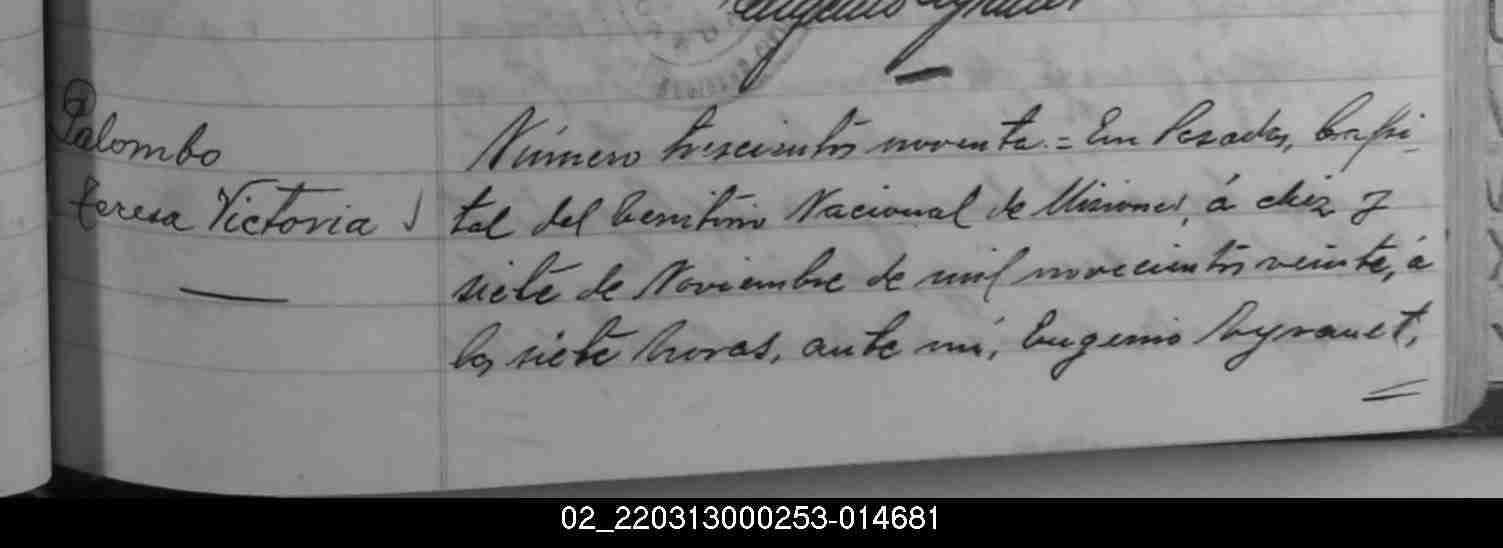 Palombo
Teresa Victoria
Número trescientos noventa = En Posadas, Capi-
tal del Territorio Nacional de Misiones, á diez y
siete de Noviembre de mil novecientos veinte, á
las siete horas, ante mí, Eugenio
02_220313000253-014681